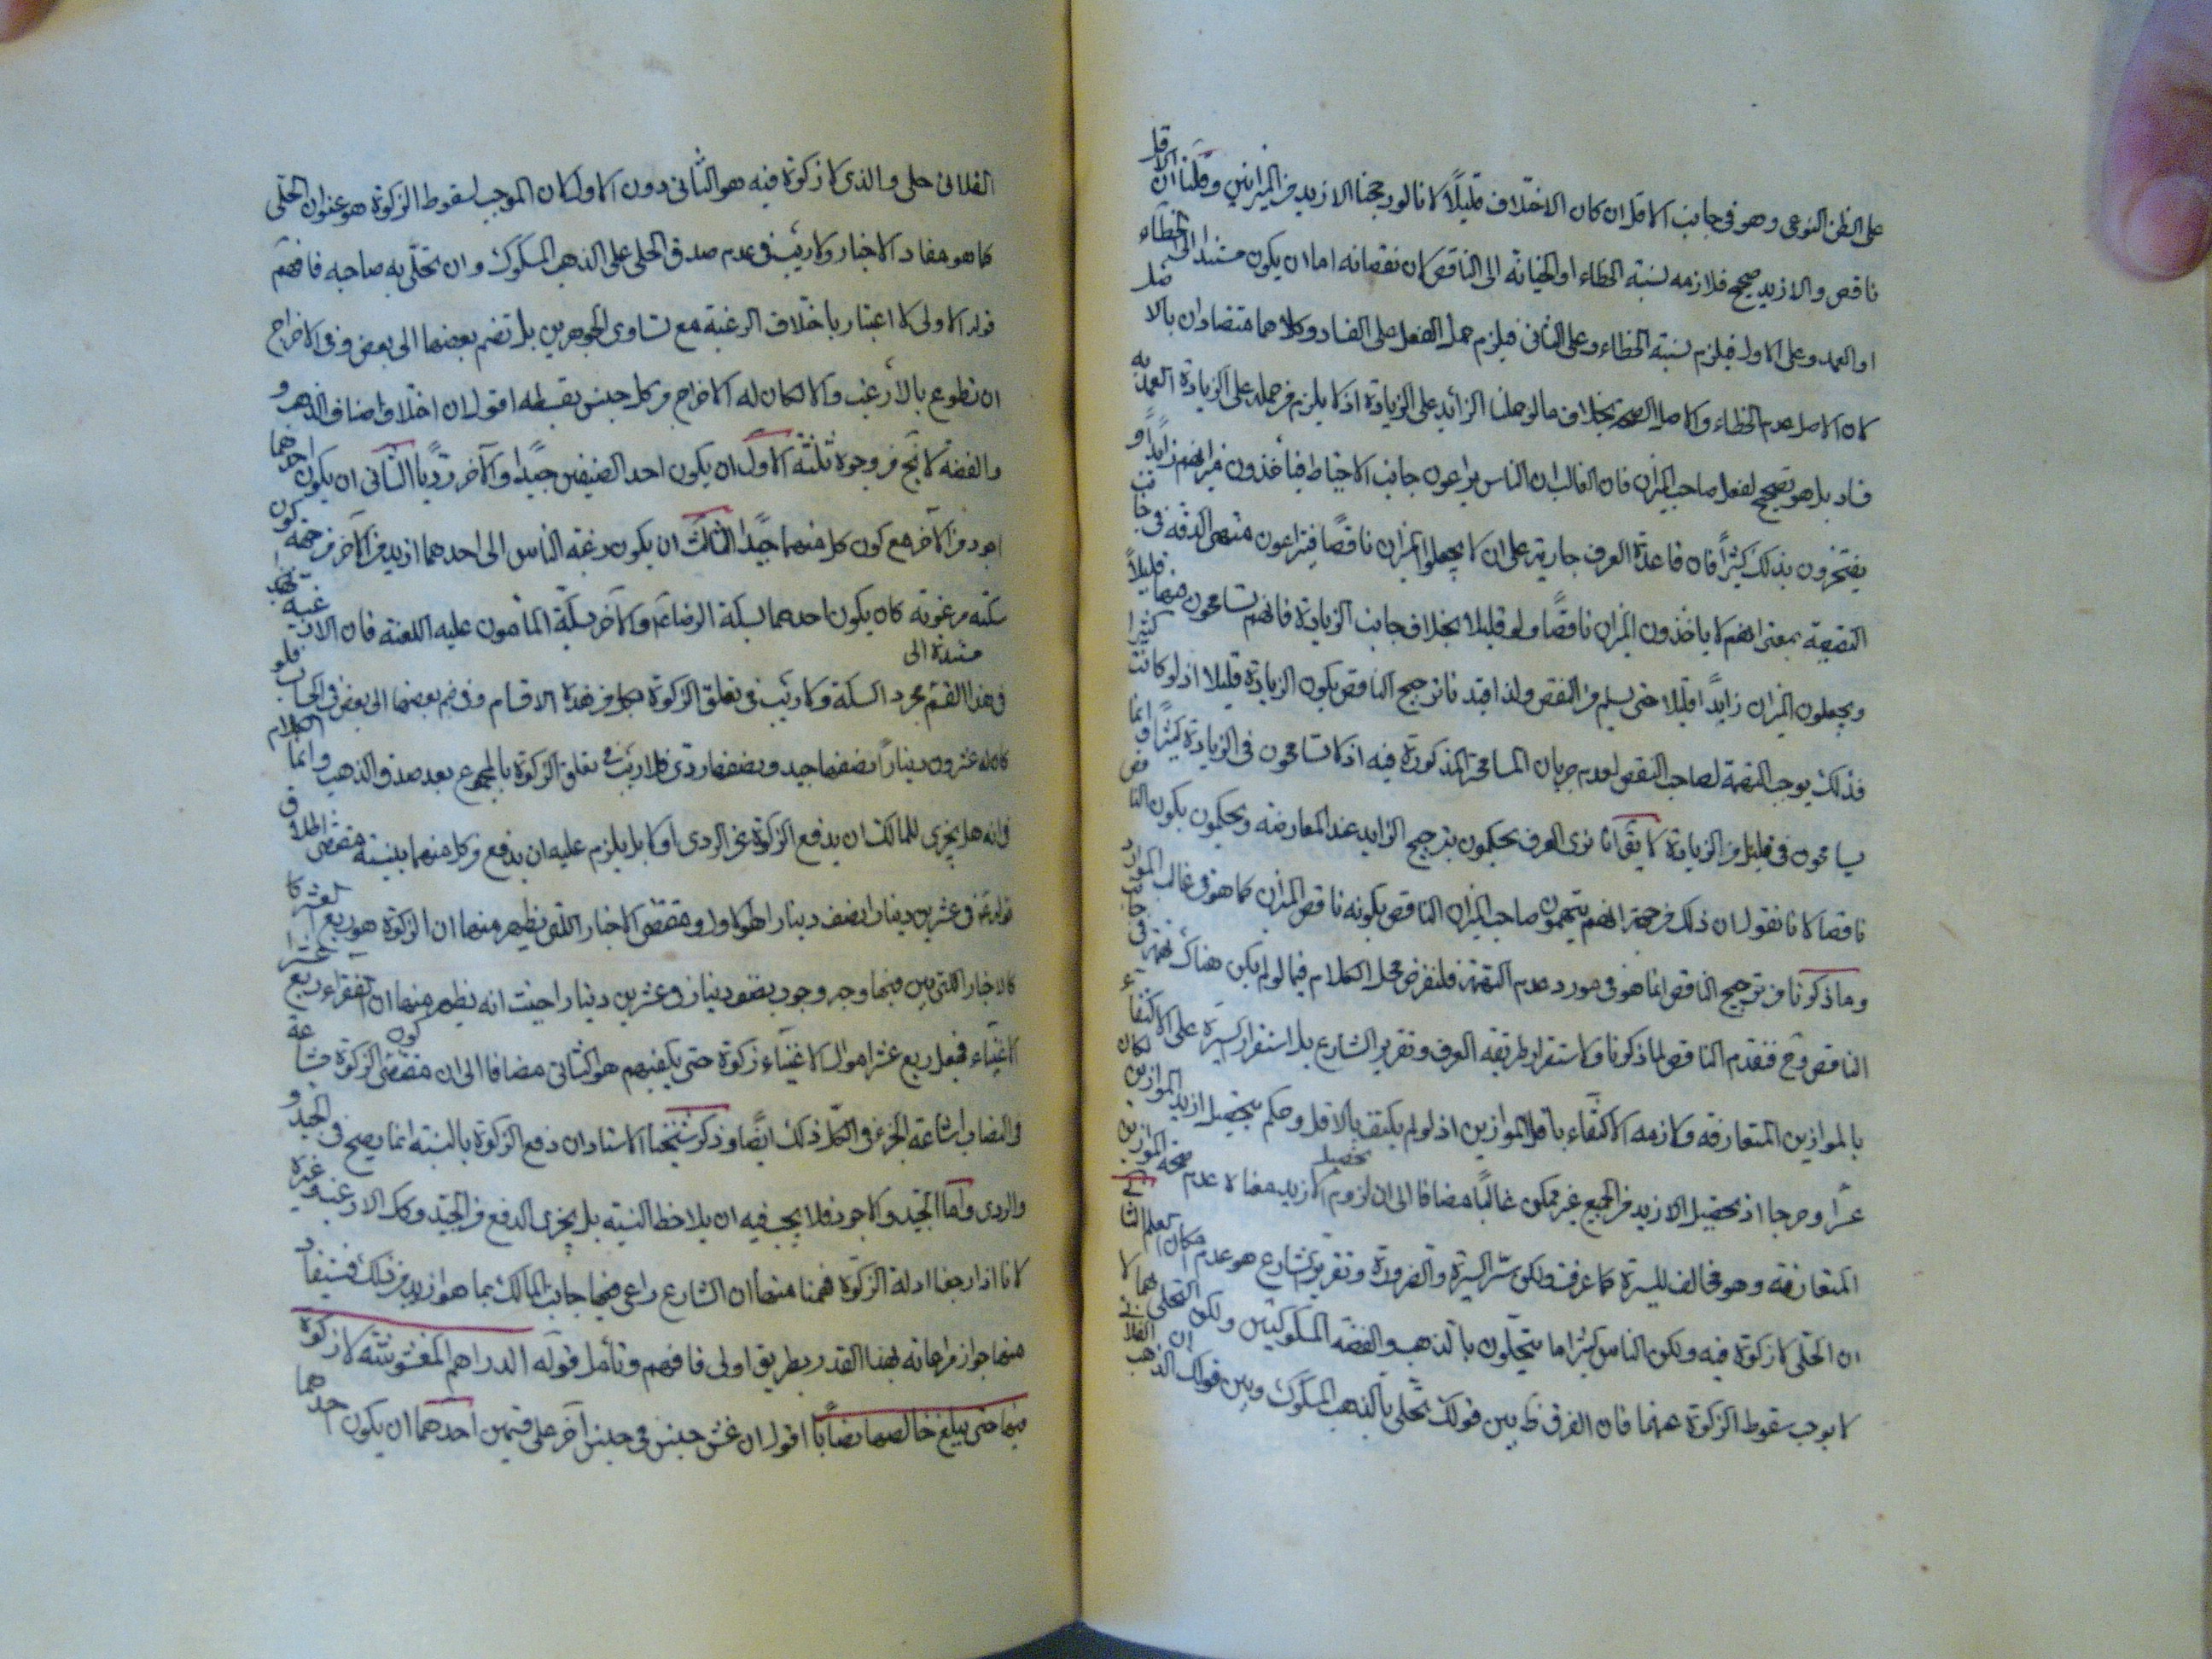 على الظن النوعى وهو فى جانب الاقل ان كان الاختلاف قليلاً لانا لو رجحنا الازيد من الميزانين وقلنا ان الاقل
ناقص والازيد صحيح فلازمه نسبة الخطاء او الخيانة الى الناقص لان نقصانه اما ان يكون مستندا الى الخطاء
او العمد وعلى الاول فيلزم نسبة الخطاء وعلى الثانى فيلزم حمل الفعل على الفساد وكلاهما متضادان بالاصل
لان الاصل عدم الخطاء والاصل الصحة بخلاف ما لو حملنا الزائد على الزيادة اذ لا يلزم من حمله على الزيادة العمدية
فساد بل هو تصحيح لفعل صاحب الميزان فان الغالب ان الناس يراعون جانب الاحتياط فيأخذون ميزانهم زايداً و
يفتخرون بذلك كثيراً فان قاعدة العرف جارية على ان لا يجعلوا الميزان ناقصاً فيراعون منتهى الدقة فى جانب
النقيصة بمعنى انهم لا ياخذون الميزان ناقصاً ولو قليلا بخلاف جانب الزيادة فانهم تسامحون منها قليلاً
ويجعلون الميزان زايداً قليلا حتى يسلم من النقص ولذا قيد ناترجيح الناقص بكون الزيادة قليلا اذ لو كانت كثيرا
فذلك يوجب التهمة لصاحب النقص لعدم جريان المسامحة المذكورة فيه اذ لا تسامحون فى الزيادة كثيراً وانما
يسامحون فى قليل من الزيادة لا يق انا نرى العرف يحكمون بترجيح الزايد عند المعارضه ويحكمون بكون الناقص
ناقصا لانا نقول ان ذلك من جهة انهم يتهمون صاحب الميزان الناقص بكونه ناقص الميزان كما هو فى غالب الموارد
وما ذكرنا من ترجيح الناقص انما هو فى مورد عدم التهمة فلنفرض محل الكلام فيما لو لم يكن هناك تهمة فى جانب
الناقص وح فنقدم الناقص لما ذكرنا ولاستقرار طريقة العرف وتقرير الشارع بل استقرار السيرة على الاكتفاء
بالموازين المتعارفة ولازمه الاكتفاء باقل الموازين اذ لو لم يكتف بالاقل وحكم بتحصيل ازيد الموازين لكان
عسراً وحرجا اذ تحصيل الازيد من الجميع غير ممكن غالباً مضافا الى ان لزوم تحصيل الازيد معناه عدم صحة الموازين
المتعارفة وهو مخالف للسيرة كما عرفت ولكن سرّ السيرة والضرورة وتقرير الشارع هو عدم امكان العلم
ان الحلى لا زكوة فيه ولكن الناس كثيرا ما يتحلون بالذهب والفضة المسكوكتين ولكن التحلى بهما لا
لا يوجب سقوط الزكوة عنهما فان الفرق ظ بين قولك تحلى بالذهب المسكوك وبين قولك ان الذهب
الفلانى حلى والذى لا زكوة فيه هو الثانى دون الاول لان الموجب لسقوط الزكوة هو عنوان الحلى
كما هو مفاد الاخبار ولا ريب فى عدم صدق الحلى على الذهب المسكوك وان تحلّى به صاحبه فافهم
قوله الاولى لا اعتبار باختلاف الرغبة مع تساوى الجوهرين بل تضم بعضها الى بعض وفى الاخراج
ان تطوع بالارغب والا كان له الاخراج من كل جنس بقسطه اقول ان اختلاف اصناف الذهب و
والفضة لا يخ من وجوه ثلثة الاول ان يكون احد الصنفين جيداً والآخر رديّاً الثانى ان يكون احدهما
اجود من الآخر مع كون كل منهما جيّدا الثالث ان يكون رغبة الناس الى احدهما ازيد من الآخر من جهة كون
سكته مرغوبة كان يكون احدهما بسكة الرضا عم والآخر بسكّة المأمون عليه اللعنة فان الارغبية
فى هذا القسم مستندة الى مجرد السكة ولا ريب فى تعلق الزكوة بكل من هذه الاقسام وفى ضم بعضها الى بعض فى الحساب فلو
كان له عشرون ديناراً نصفها جيد ونصفها ردى فلا ريب فى تعلق الزكوة بالمجموع بعد صدق الذهب وانما الكلام
فى انه هل يجزى للمالك ان يدفع الزكوة من الردى او لا بل يلزم عليه ان يدفع من كل منهما بنسبته مقتضى اطلاق
قوله عم فى عشرين دينارا نصف دينار هو الاول ومقتضى الاخبار اللتى يظهر منها ان الزكوة هو ربع العشر كا
كالاخبار اللتى بين فيها وجه وجوب نصف دينار فى عشرين دينارا حيث انه يظهر منها ان للفقراء ربع عشر
الاغنياء فجعل ربع عشر اموال الاغنياء زكوة حتى يكفيهم هو الثانى مضافا الى ان مقتضى كون الزكوة مشاعة
فى النصاب اشاعة الجزء فى الكل ذلك ايضاً وذكر شيخنا الاستاد ان دفع الزكوة بالنسبة انما يصح فى الجيد و
والردى واما الجيد والاجود فلا يجب فيه ان يلاحظ النسبة بل يجزى الدفع من الجيد وكك الارغب وغيره
لانا اذا راجعنا ادلة الزكوة فهمنا منها ان الشارع راعى فيها جانب المالك بما هو ازيد من ذلك فيستفاد
منها جواز مراعاته بهذا القدر بطريق اولى فافهم وتأمل قوله الدراهم المغشوشة لا زكوة
فيها حتى يبلغ خالصها نصاباً اقول ان غش جنس فى جنس آخر على قسمين احدهما ان يكون احدهما